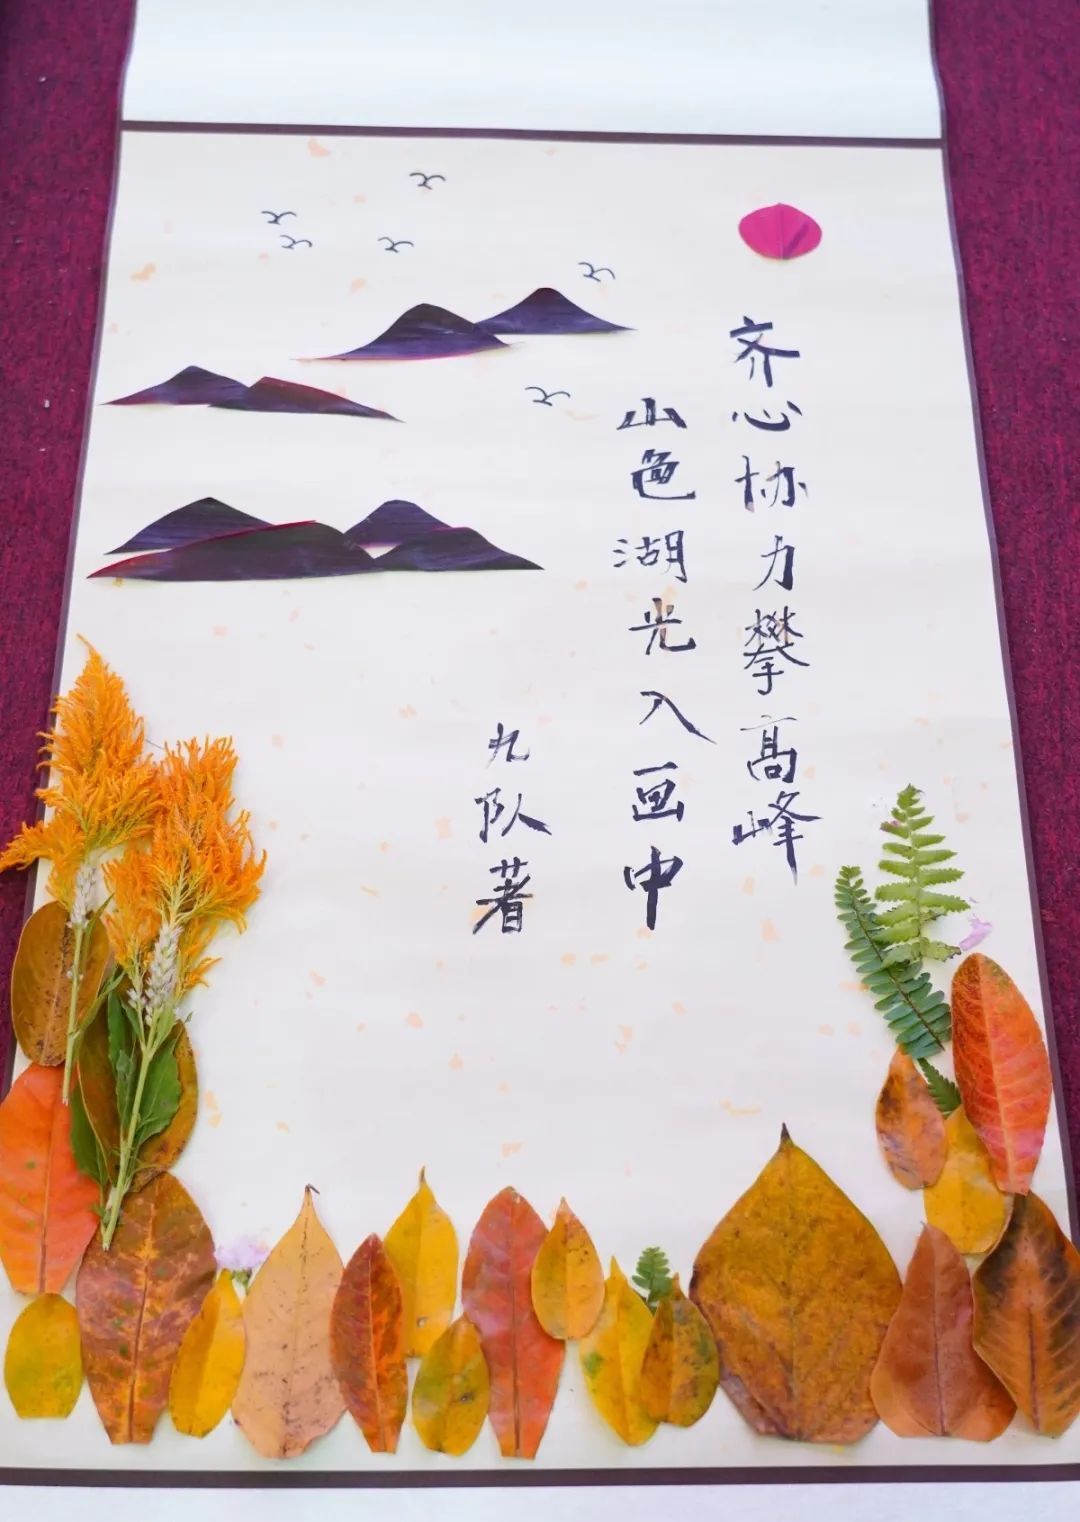 齐心协力攀高峰
山色湖光入画中
九队著